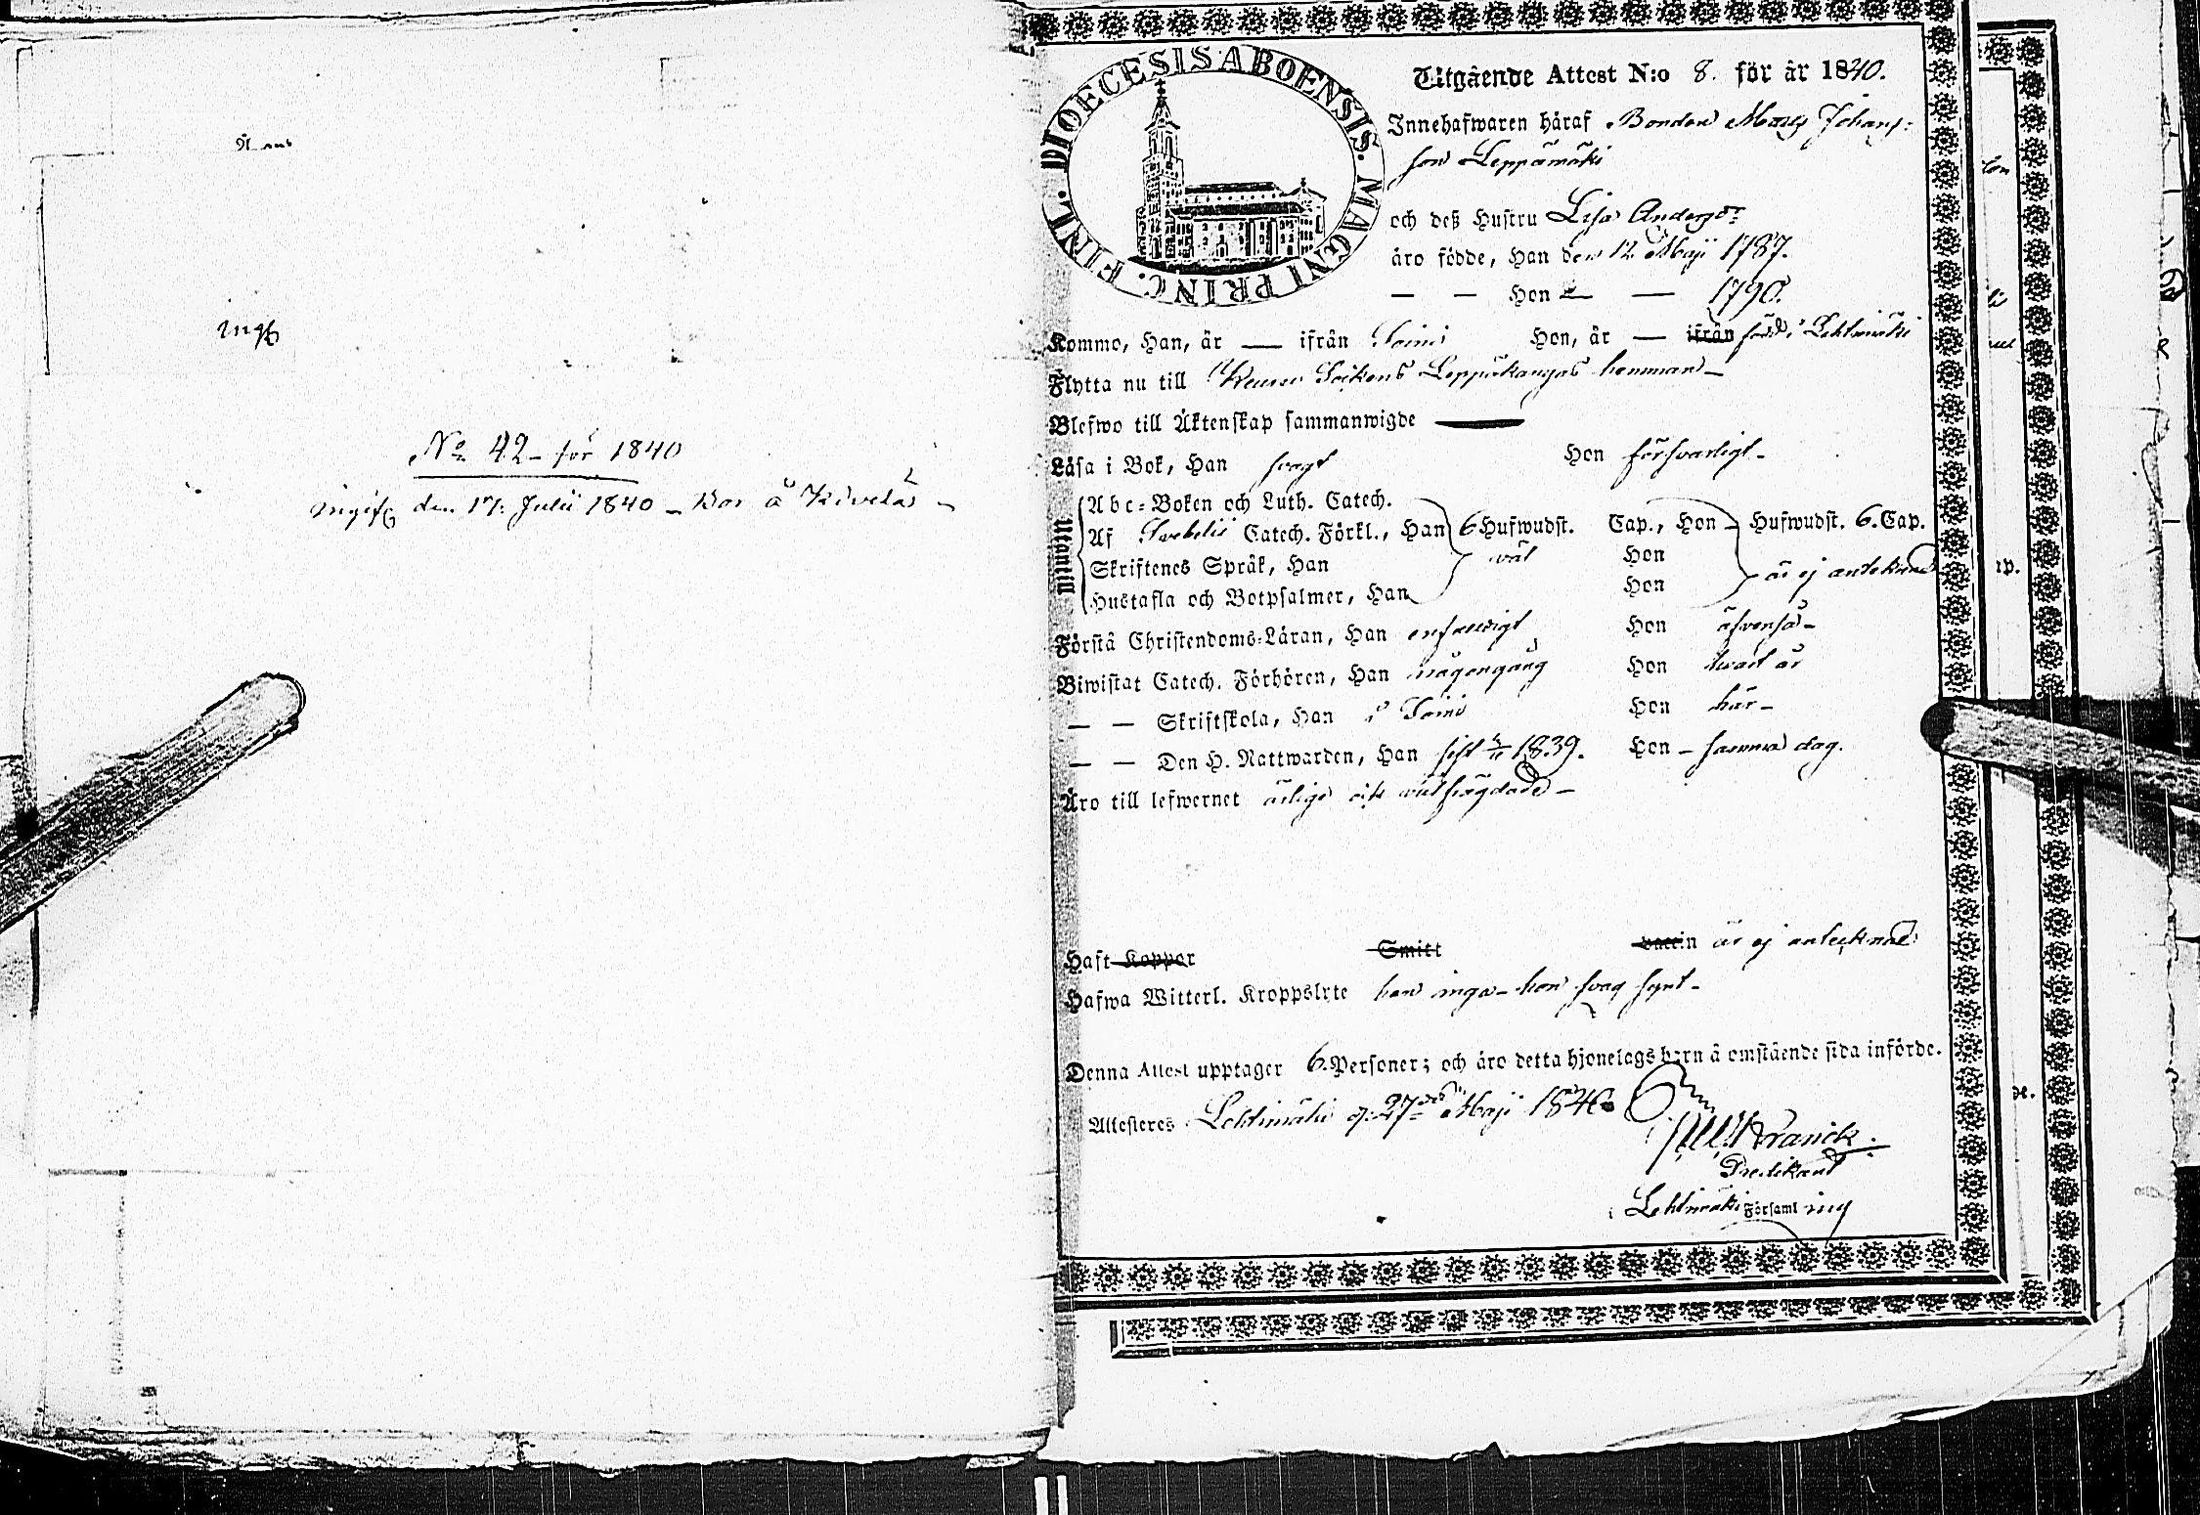 No 42 – för 1840
ingifv. den 17. Julii 1840 – bor å Kivelä –
DIOECESIS ABOENSIS. MAGNI PRINC. FINL.
Utgående Attest N:o 8. för år 1840.
Innehafwaren häraf Bonden Matts Johans-
son Leppämäki
och deß Hustru Lisa Andersdr
äro födde, Han den 12 Maji 1787.
— — Hon — — 1790.
Komme, Han, år — ifrån Soini Hon, år — ifrån född i Lehtimäki
Flytta nu till Keuru Sockens Leppäkangas hemman –
Blefwo till Äktenskap sammanwigde —
Läsa i Bok, Han svagt Hon försvarligt –
Abc-Boken och Luth. Catech.
Af Svebelii Catech. Förkl., Han 6 Hufwudst. Cap., Hon – Hufwudst. 6. Cap.
Skriftenes Språk, Han wäl Hon
Hustafla och Botpsalmer, Han Hon är ej antecknad
Utantill
Förstå Christendoms-Läran, Han enfaldigt Hon äfvenså –
Biwistat Catech. Förhören, Han någongång Hon hvart år
— — Skriftskola, Han i Soini Hon här –
— — Den H. Nattwarden, Han sist 1839. Hon – samma dag.
Äro till lefwernet ärliga och wälfrägdade –
Haft Koppor Smitt vaccin är ej antecknad
Hafwa Witterl. Kroppslyte han inga – hon svag synt –
Denna Attest upptager 6. Personer; och äro detta hjonelags barn å omstående sida införde.
Attesteres Lehtimäki d. 27de Maji 1840.
Franck.
Predikant
i Lehtimäki Församling